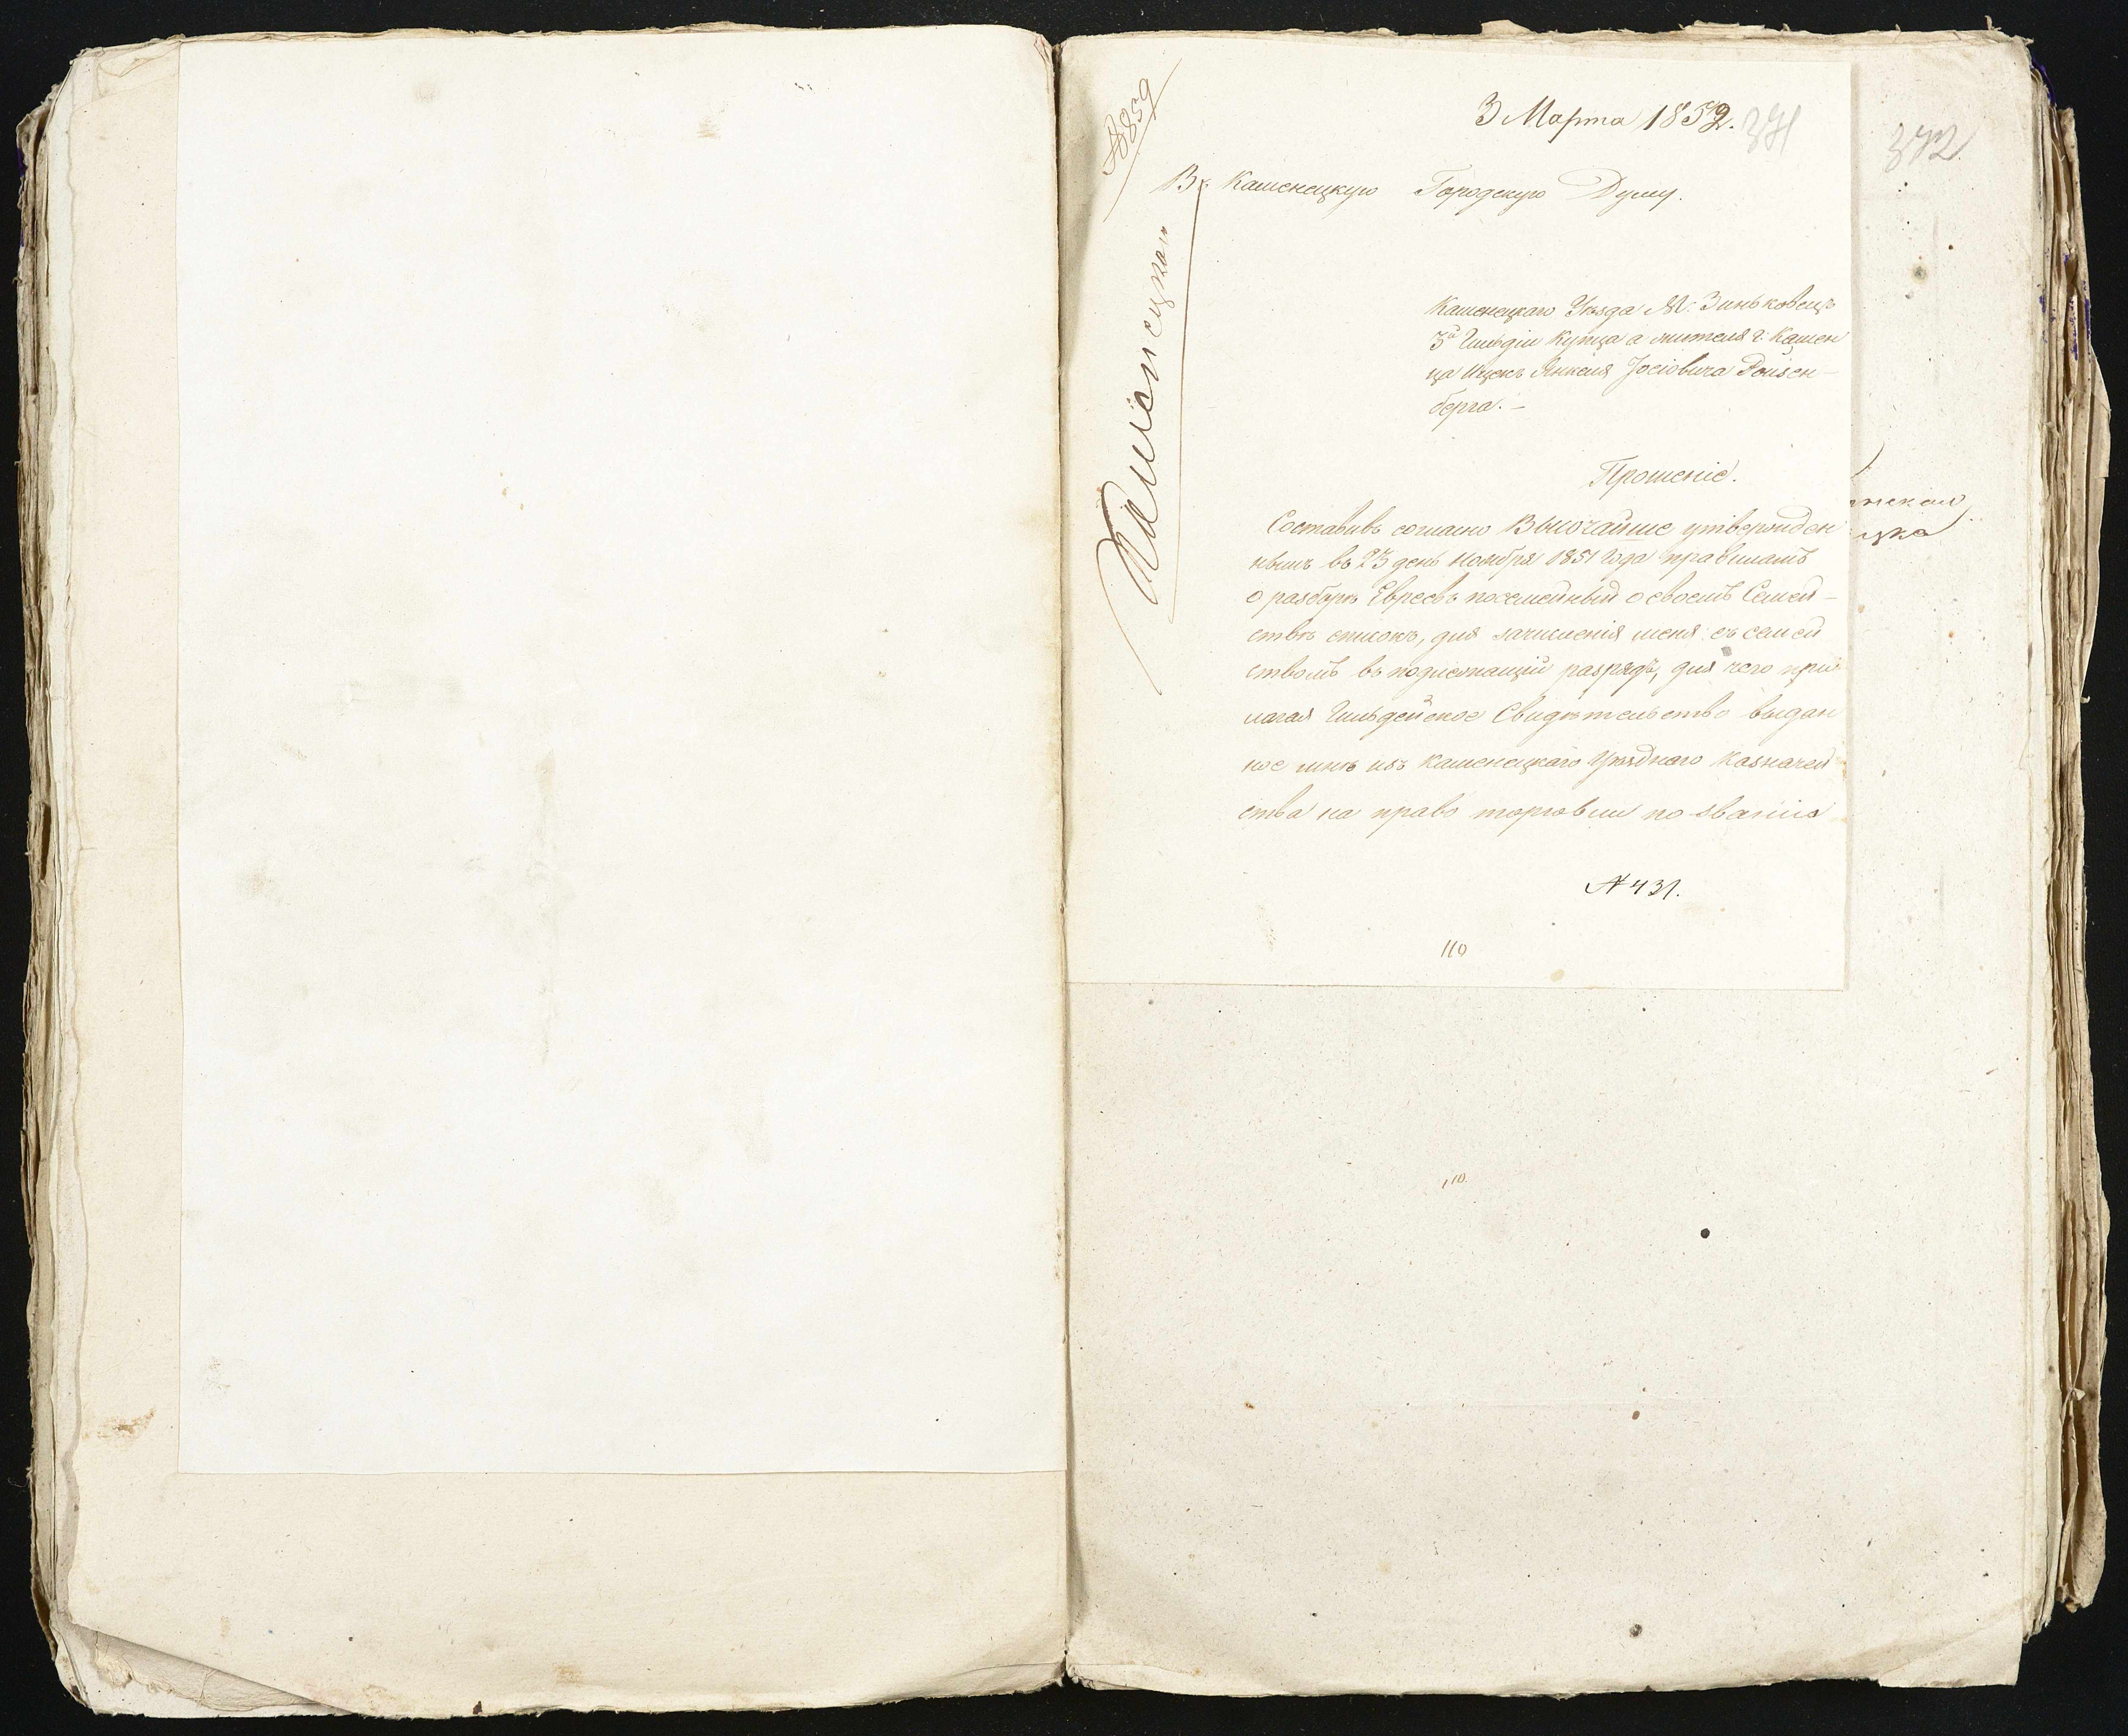 3 Марта 1852.
371
372
№ 859
Въ Каменецкую Городскую Думу.
Каменецкаго Уѣзда М. Зиньковецъ
3й Гильдіи Купца а жителя г. Камен
ца Ицекъ Янкеля Іосіовича Ройзен-
берга. –
Прошеніе.
Составивъ согласно Высочайше утвержден
нымъ въ 23 день ноября 1851 года правиламъ
о разборѣ Евреевъ посемейный о своемъ Семей-
ствѣ списокъ, для зачисленія меня съ семей
ствомъ въ подлежащій разрядъ, для чего при
лагая Гильдейское Свидѣтельство выдан
ное мнѣ изъ Каменецкаго Уѣзднаго Казначей
ства на право торговли по званію
№ 431.
110
110.